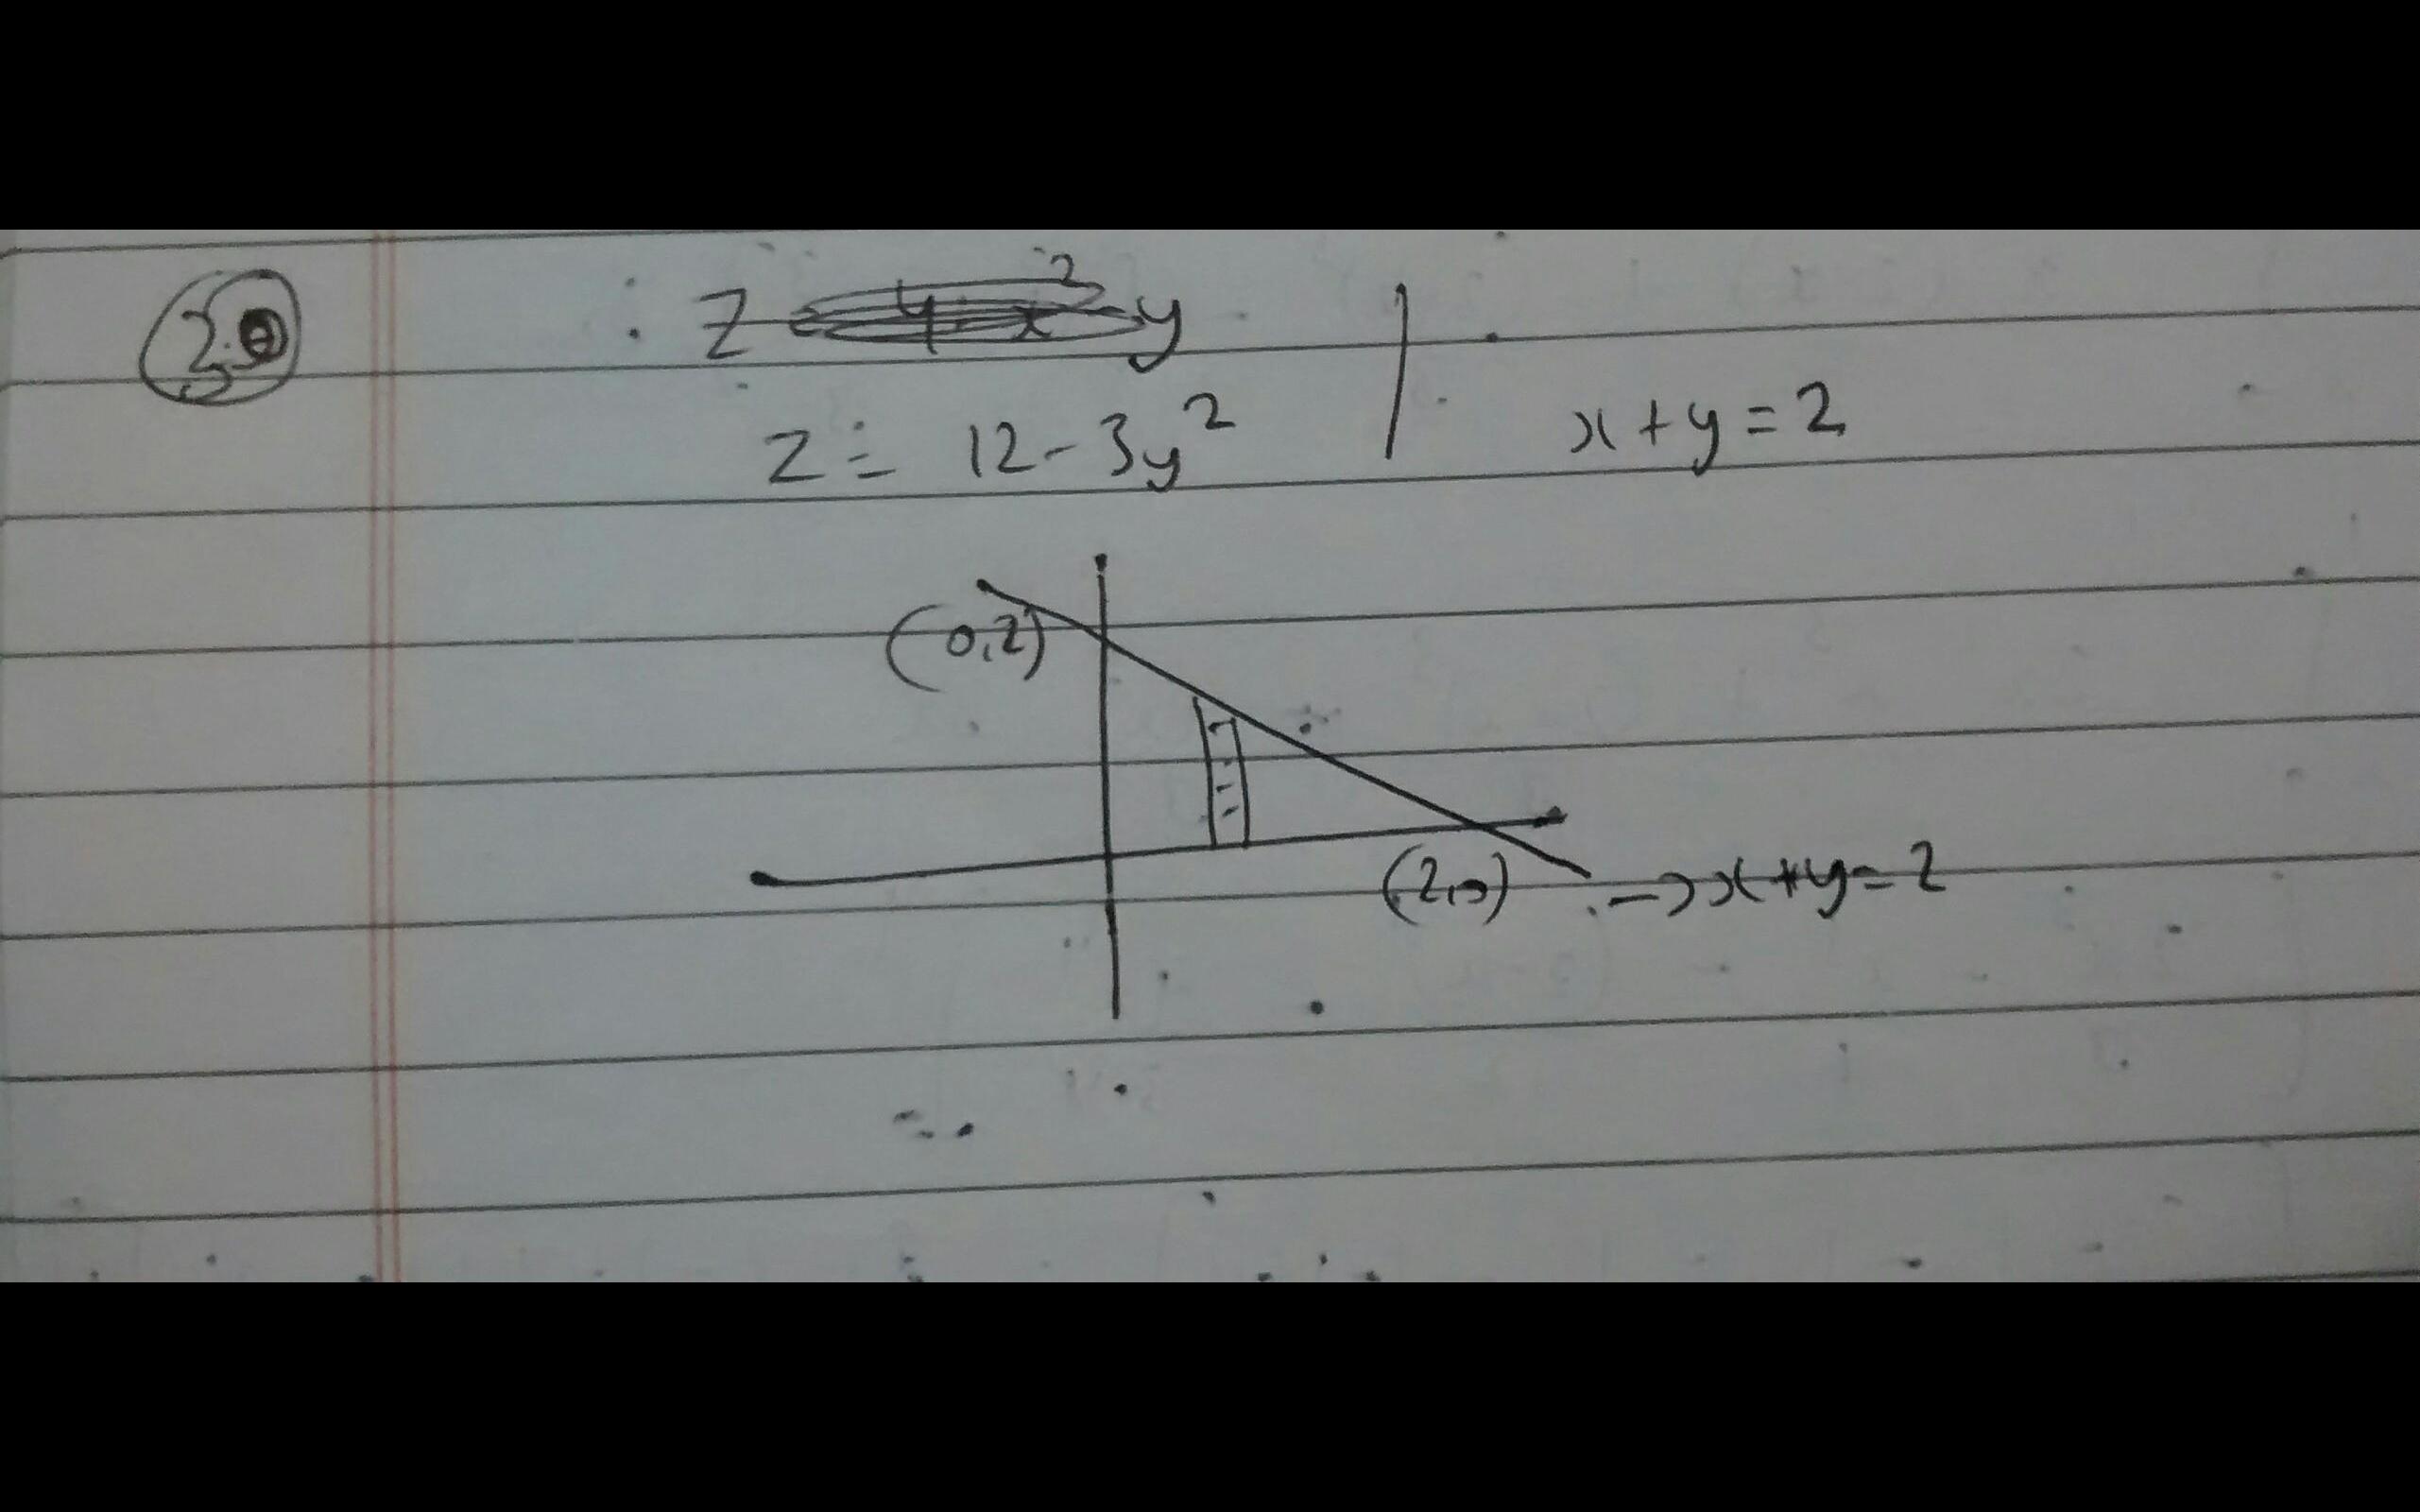 z = 12 - 3y²
x + y = 2
(0,2)
(2,0)
→ x + y = 2